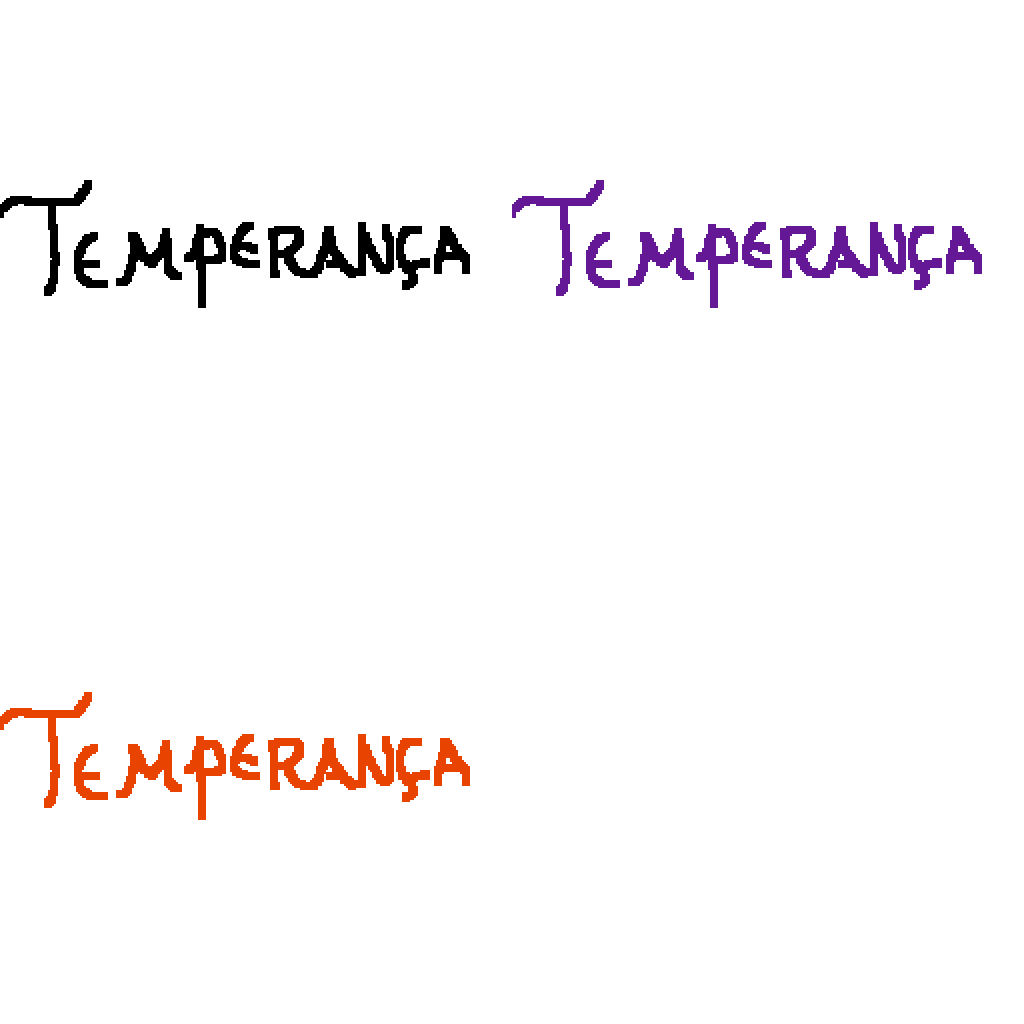 Temperança Temperança
Temperança